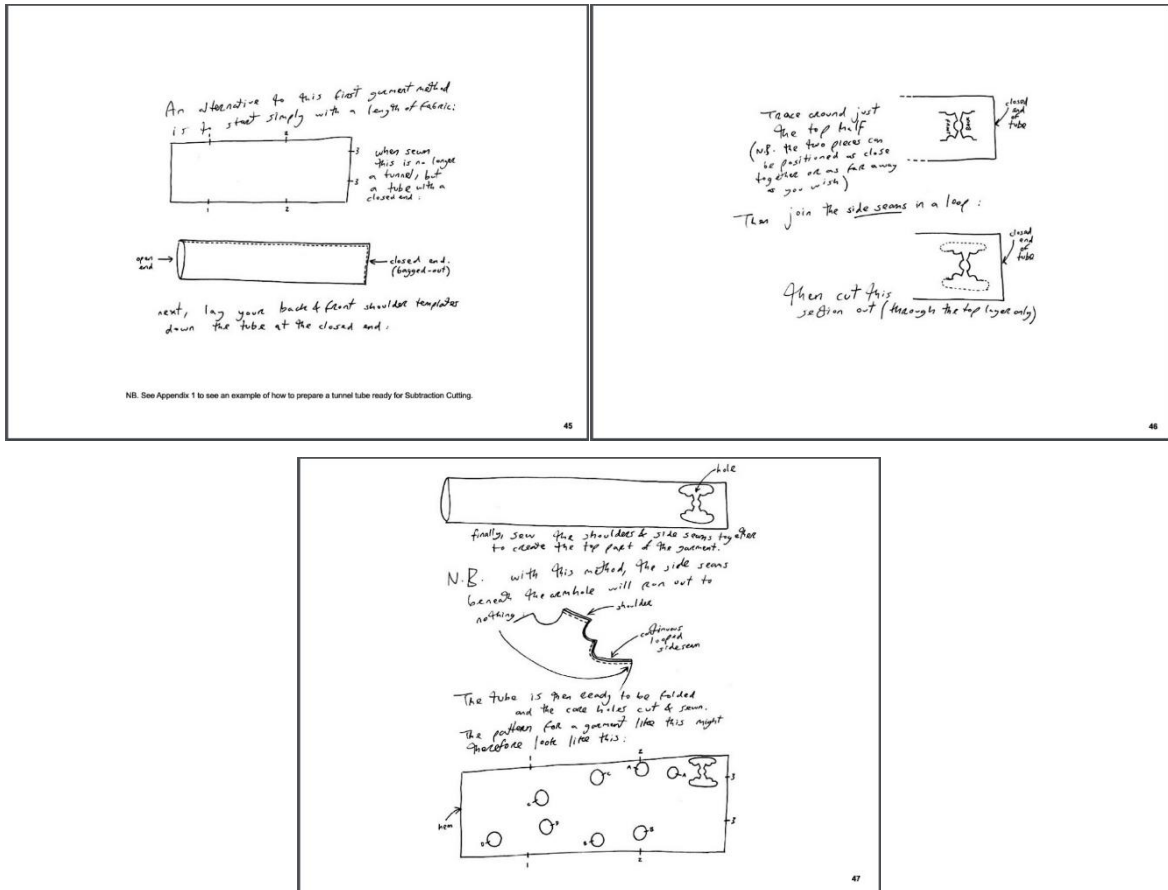 An alternative to this first garment method
is to start simply with a length of fabric:
1
2
3
when sewn
this is no longer
a tunnel, but
a tube with a
closed end:
3
1
2
open
end
closed end.
(bagged-out)
next, lay your back & front shoulder templates
down the tube at the closed end:
NB. See Appendix 1 to see an example of how to prepare a tunnel tube ready for Subtraction Cutting.
45
Trace around just
the top half
(N.B. the two pieces can
be positioned as close
together or as far away
as you wish)
closed
end
of
tube
Then join the side seams in a loop:
closed
end
of
tube
then cut this
section out (through the top layer only)
46
hole
finally, sew the shoulders & side seams together
to create the top part of the garment.
N.B. with this method, the side seams
beneath the armhole will run out to
nothing:
shoulder
continuous
looped
sideseam
The tube is then ready to be folded
and the core holes cut & sewn.
The pattern for a garment like this might
therefore look like this:
1
2
C
A
A
3
D
B
B
3
hem
1
2
47